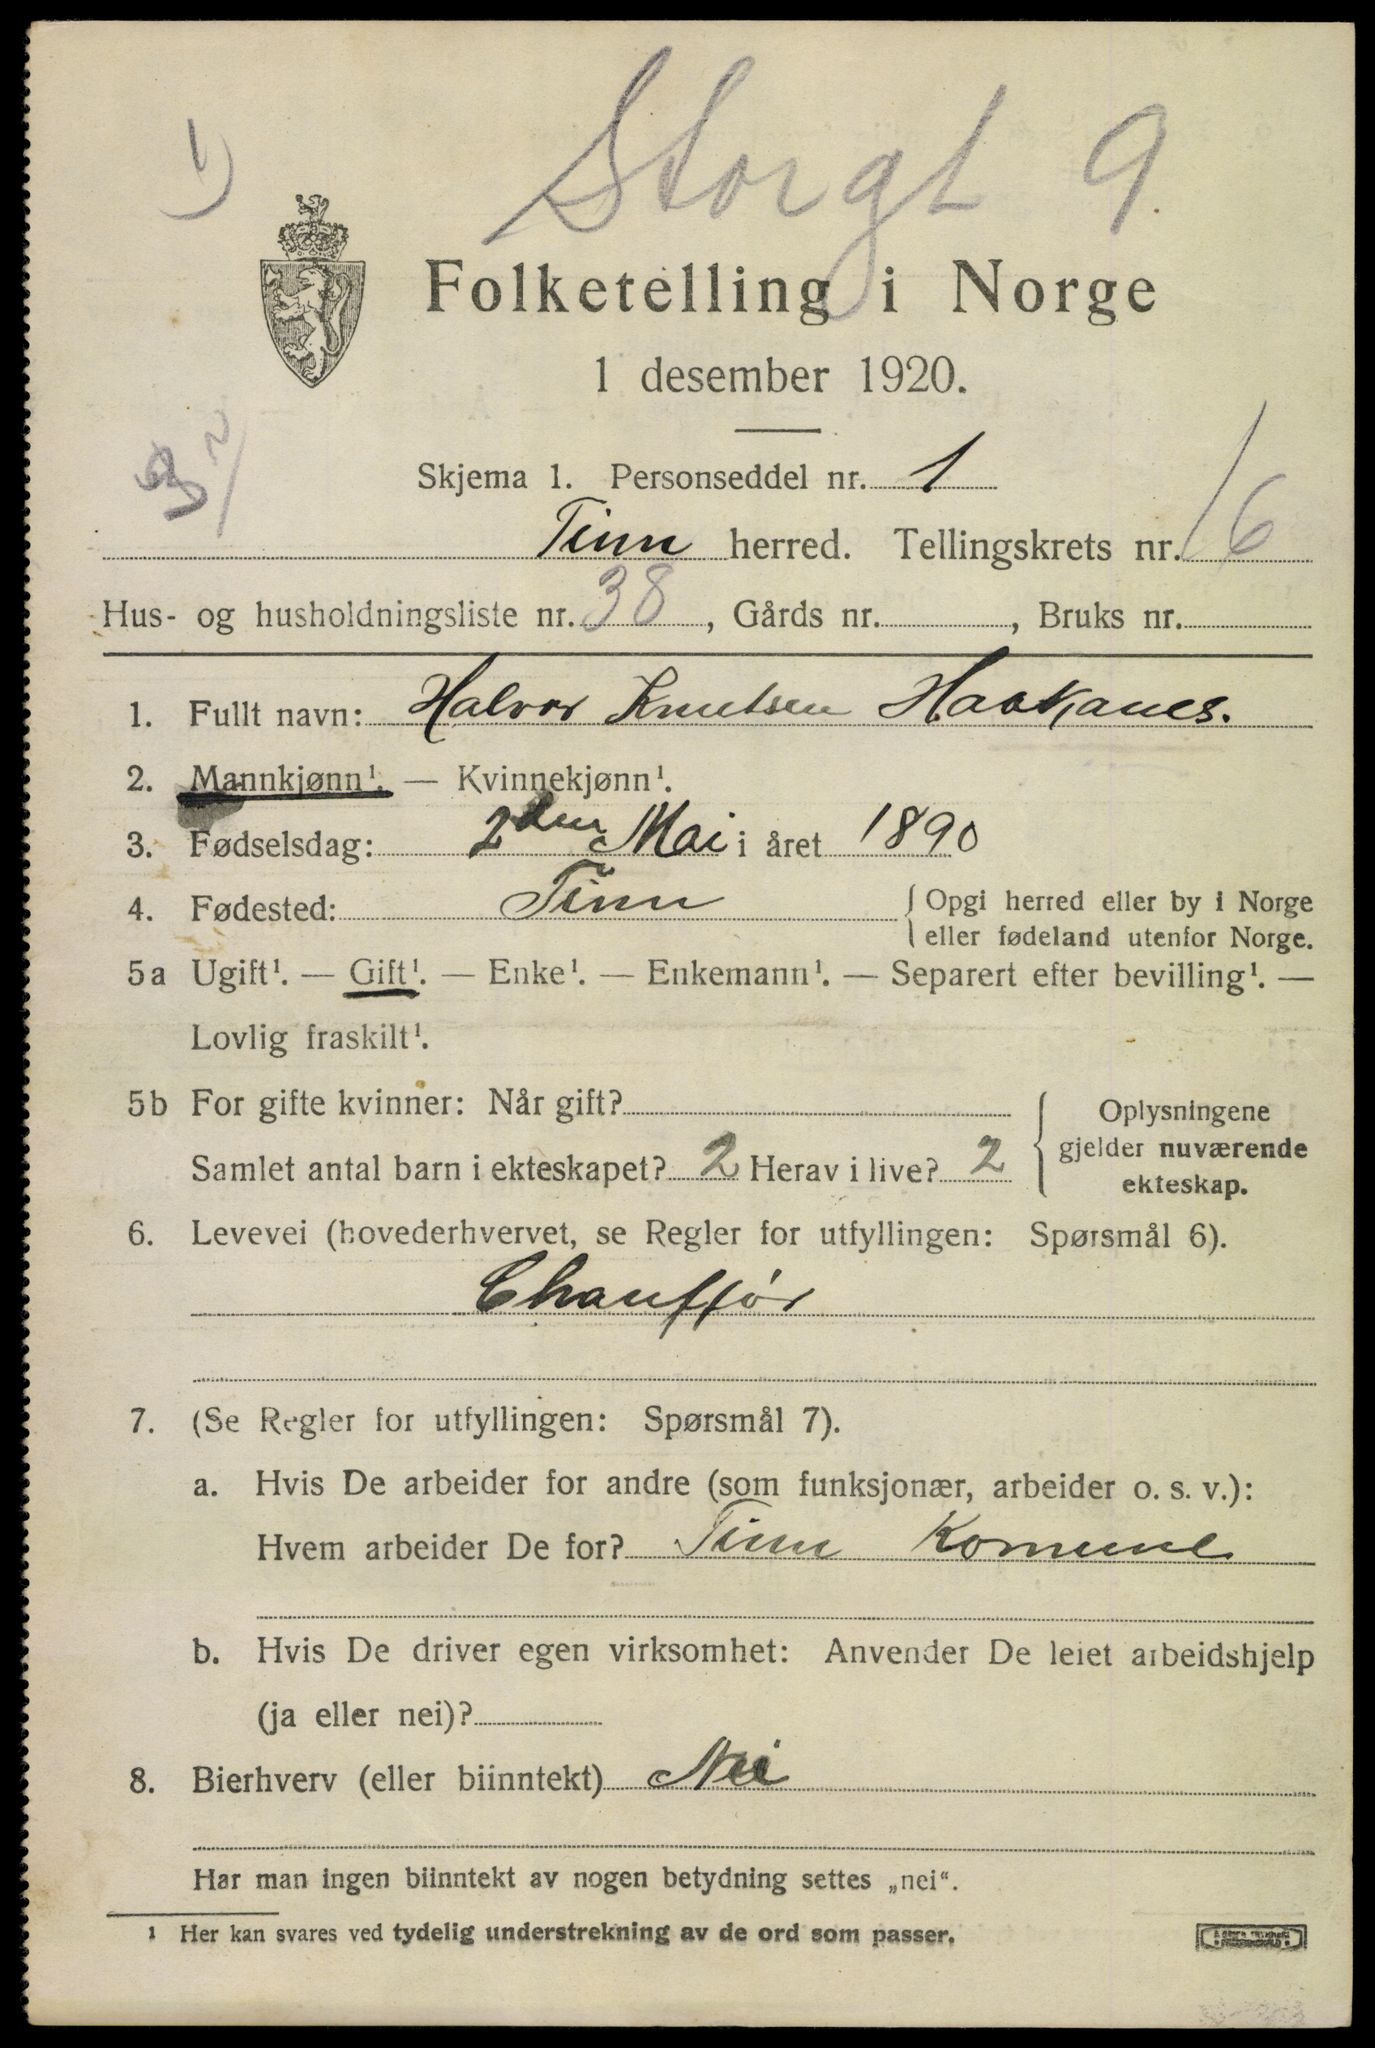 1)
Storgt 9
Folketelling i Norge
1 desember 1920.
Skjema 1. Personseddel nr. 1
Tinn herred. Tellingskrets nr. 16
Hus- og husholdningsliste nr. 38, Gårds nr. , Bruks nr.
1. Fullt navn: Halvor Knutsen Haakanes.
2. Mannkjønn¹. — Kvinnekjønn¹.
3. Fødselsdag: 2den Mai i året 1890
4. Fødested: Tinn { Opgi herred eller by i Norge
eller fødeland utenfor Norge.
5a Ugift¹. — Gift¹. — Enke¹. — Enkemann¹. — Separert efter bevilling¹. —
Lovlig fraskilt¹.
5b For gifte kvinner: Når gift?
Samlet antal barn i ekteskapet? 2 Herav i live? 2
{ Oplysningene
gjelder nuværende
ekteskap.
6. Levevei (hovederhvervet, se Regler for utfyllingen: Spørsmål 6).
Chauffør
7. (Se Regler for utfyllingen: Spørsmål 7).
a. Hvis De arbeider for andre (som funksjonær, arbeider o. s. v.):
Hvem arbeider De for? Tinn Komune
b. Hvis De driver egen virksomhet: Anvender De leiet arbeidshjelp
(ja eller nei)?
8. Bierhverv (eller biinntekt) Nei
Har man ingen biinntekt av nogen betydning settes „nei“.
¹ Her kan svares ved tydelig understrekning av de ord som passer.